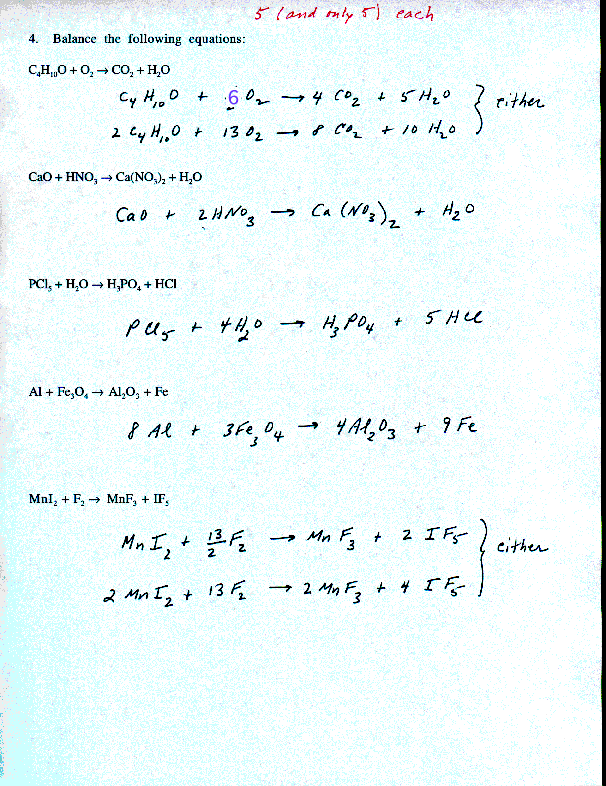 5 (and only 5) each
4. Balance the following equations:
C₄H₁₀O + O₂ → CO₂ + H₂O
C₄H₁₀O + 6 O₂ → 4 CO₂ + 5 H₂O } either
2 C₄H₁₀O + 13 O₂ → 8 CO₂ + 10 H₂O
CaO + HNO₃ → Ca(NO₃)₂ + H₂O
CaO + 2 HNO₃ → Ca(NO₃)₂ + H₂O
PCl₅ + H₂O → H₃PO₄ + HCl
PCl₅ + 4 H₂O → H₃PO₄ + 5 HCl
Al + Fe₃O₄ → Al₂O₃ + Fe
8 Al + 3 Fe₃O₄ → 4 Al₂O₃ + 9 Fe
MnI₂ + F₂ → MnF₃ + IF₅
MnI₂ + 13/2 F₂ → MnF₃ + 2 IF₅ } either
2 MnI₂ + 13 F₂ → 2 MnF₃ + 4 IF₅